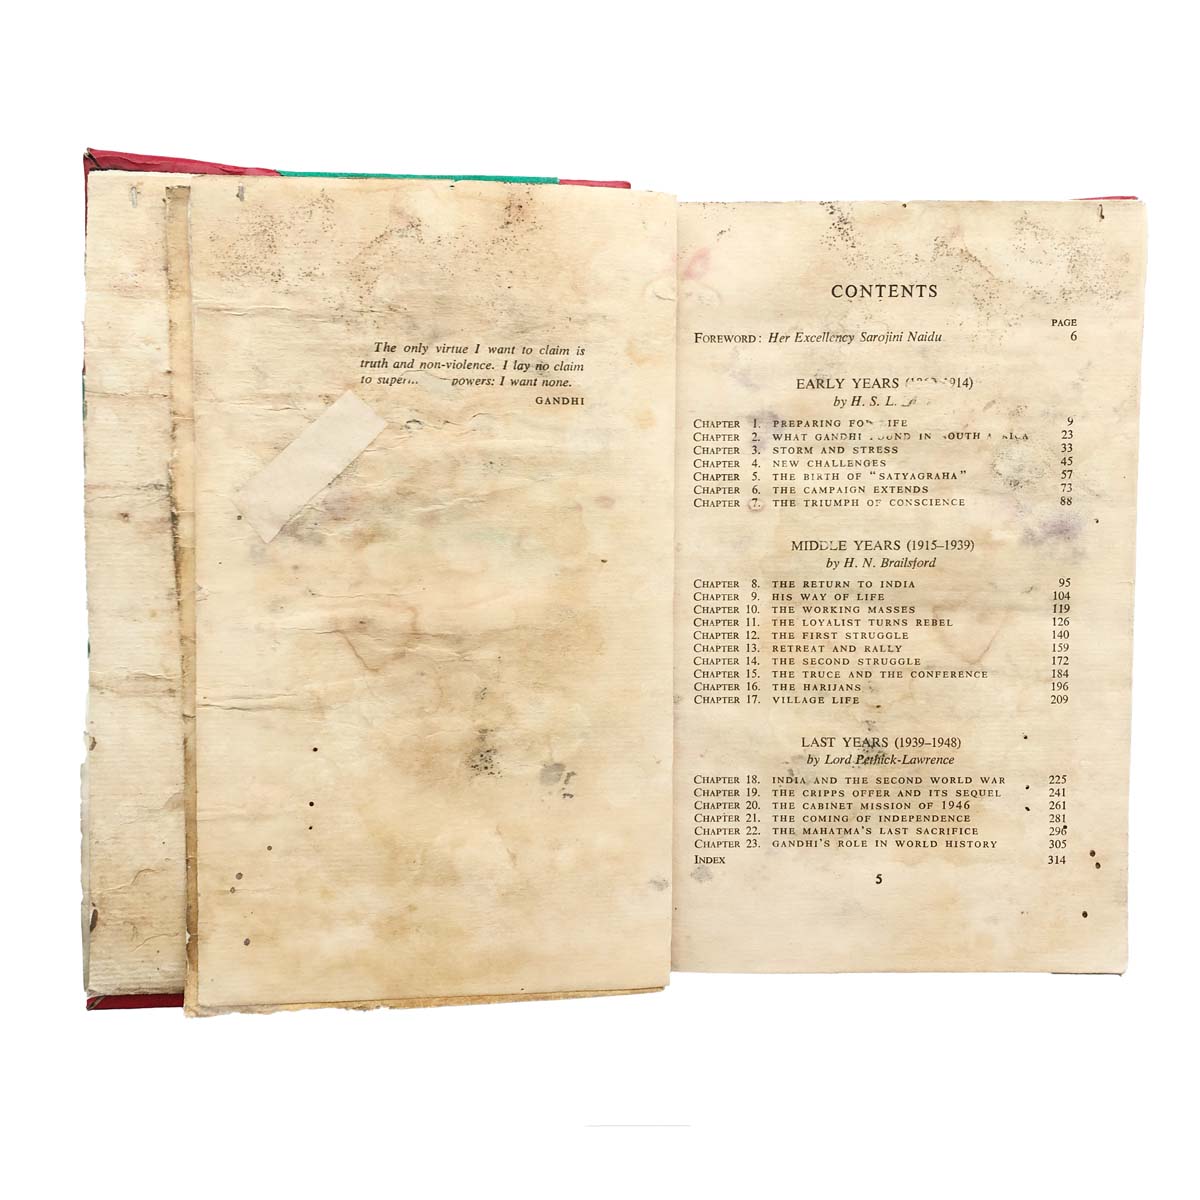 The only virtue I want to claim is
truth and non-violence. I lay no claim
to powers: I want none.
GANDHI
CONTENTS
PAGE
FOREWORD: Her Excellency Sarojini Naidu 6
EARLY YEARS
by H. S. L.
CHAPTER 1. PREPARING FOR LIFE 9
CHAPTER 2. WHAT GANDHI FOUND IN SOUTH AFRICA 23
CHAPTER 3. STORM AND STRESS 33
CHAPTER 4. NEW CHALLENGES 45
CHAPTER 5. THE BIRTH OF "SATYAGRAHA" 57
CHAPTER 6. THE CAMPAIGN EXTENDS 73
CHAPTER 7. THE TRIUMPH OF CONSCIENCE 88
MIDDLE YEARS (1915–1939)
by H. N. Brailsford
CHAPTER 8. THE RETURN TO INDIA 95
CHAPTER 9. HIS WAY OF LIFE 104
CHAPTER 10. THE WORKING MASSES 119
CHAPTER 11. THE LOYALIST TURNS REBEL 126
CHAPTER 12. THE FIRST STRUGGLE 140
CHAPTER 13. RETREAT AND RALLY 159
CHAPTER 14. THE SECOND STRUGGLE 172
CHAPTER 15. THE TRUCE AND THE CONFERENCE 184
CHAPTER 16. THE HARIJANS 196
CHAPTER 17. VILLAGE LIFE 209
LAST YEARS (1939–1948)
by Lord Pethick-Lawrence
CHAPTER 18. INDIA AND THE SECOND WORLD WAR 225
CHAPTER 19. THE CRIPPS OFFER AND ITS SEQUEL 241
CHAPTER 20. THE CABINET MISSION OF 1946 261
CHAPTER 21. THE COMING OF INDEPENDENCE 281
CHAPTER 22. THE MAHATMA'S LAST SACRIFICE 296
CHAPTER 23. GANDHI'S ROLE IN WORLD HISTORY 305
INDEX 314
5